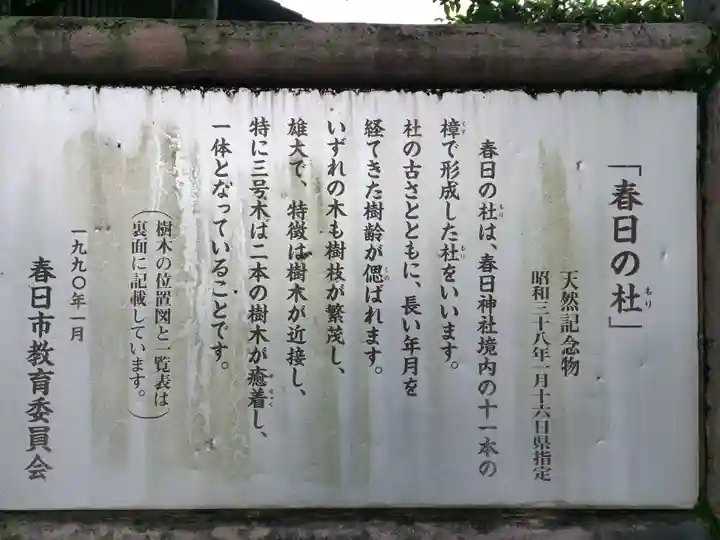 「春日の杜」
もり
天然記念物
昭和三十八年一月十六日県指定
春日の杜は、春日神社境内の十一本の
もり
樟で形成した杜をいいます。
くす
もり
杜の古さとともに、長い年月を
経てきた樹齢が偲ばれます。
しの
いずれの木も樹枝が繁茂し、
雄大で、特徴は樹木が近接し、
特に三号木は二本の樹木が癒着し、
ゆちゃく
一体となっていることです。
（樹木の位置図と一覧表は
裏面に記載しています。）
一九九〇年一月
春日市教育委員会